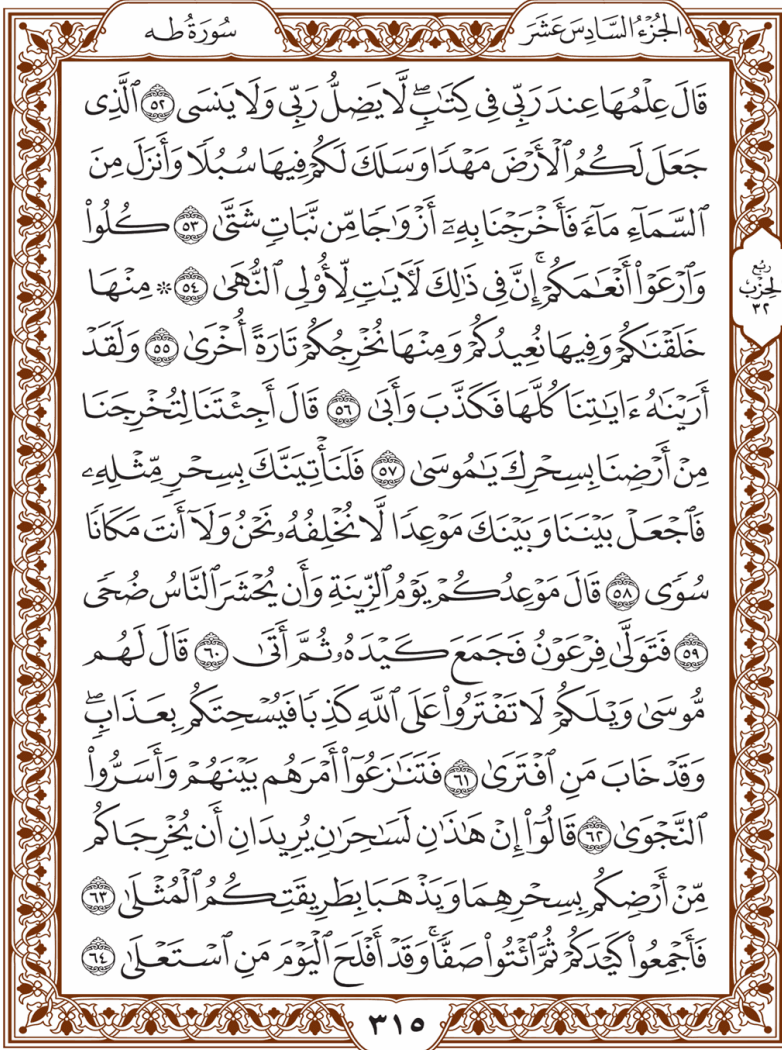 الجُزْءُ السَّادِسَ عَشَرَ
سُورَةُ طه
قَالَ عِلْمُهَا عِندَ رَبِّي فِي كِتَٰبٖۖ لَّا يَضِلُّ رَبِّي وَلَا يَنسَى ٥٢ ٱلَّذِي
جَعَلَ لَكُمُ ٱلۡأَرۡضَ مَهۡدٗا وَسَلَكَ لَكُمۡ فِيهَا سُبُلٗا وَأَنزَلَ مِنَ
ٱلسَّمَآءِ مَآءٗ فَأَخۡرَجۡنَا بِهِۦٓ أَزۡوَٰجٗا مِّن نَّبَاتٖ شَتَّىٰ ٥٣ كُلُواْ
وَٱرۡعَوۡاْ أَنۡعَٰمَكُمۡۚ إِنَّ فِي ذَٰلِكَ لَأٓيَٰتٖ لِّأُوْلِي ٱلنُّهَىٰ ٥٤ ۞ مِنۡهَا
خَلَقۡنَٰكُمۡ وَفِيهَا نُعِيدُكُمۡ وَمِنۡهَا نُخۡرِجُكُمۡ تَارَةً أُخۡرَىٰ ٥٥ وَلَقَدۡ
أَرَيۡنَٰهُ ءَايَٰتِنَا كُلَّهَا فَكَذَّبَ وَأَبَىٰ ٥٦ قَالَ أَجِئۡتَنَا لِتُخۡرِجَنَا
مِنۡ أَرۡضِنَا بِسِحۡرِكَ يَٰمُوسَىٰ ٥٧ فَلَنَأۡتِيَنَّكَ بِسِحۡرٖ مِّثۡلِهِۦ
فَٱجۡعَلۡ بَيۡنَنَا وَبَيۡنَكَ مَوۡعِدٗا لَّا نُخۡلِفُهُۥ نَحۡنُ وَلَآ أَنتَ مَكَانٗا
سُوٗى ٥٨ قَالَ مَوۡعِدُكُمۡ يَوۡمُ ٱلزِّينَةِ وَأَن يُحۡشَرَ ٱلنَّاسُ ضُحٗى
٥٩ فَتَوَلَّىٰ فِرۡعَوۡنُ فَجَمَعَ كَيۡدَهُۥ ثُمَّ أَتَىٰ ٦٠ قَالَ لَهُم
مُّوسَىٰ وَيۡلَكُمۡ لَا تَفۡتَرُواْ عَلَى ٱللَّهِ كَذِبٗا فَيُسۡحِتَكُم بِعَذَابٖۖ
وَقَدۡ خَابَ مَنِ ٱفۡتَرَىٰ ٦١ فَتَنَٰزَعُوٓاْ أَمۡرَهُم بَيۡنَهُمۡ وَأَسَرُّواْ
ٱلنَّجۡوَىٰ ٦٢ قَالُوٓاْ إِنۡ هَٰذَٰنِ لَسَٰحِرَٰنِ يُرِيدَانِ أَن يُخۡرِجَاكُم
مِّنۡ أَرۡضِكُم بِسِحۡرِهِمَا وَيَذۡهَبَا بِطَرِيقَتِكُمُ ٱلۡمُثۡلَىٰ ٦٣
فَأَجۡمِعُواْ كَيۡدَكُمۡ ثُمَّ ٱئۡتُواْ صَفّٗاۚ وَقَدۡ أَفۡلَحَ ٱلۡيَوۡمَ مَنِ ٱسۡتَعۡلَىٰ ٦٤
ربع
الحزب
٣٢
٣١٥